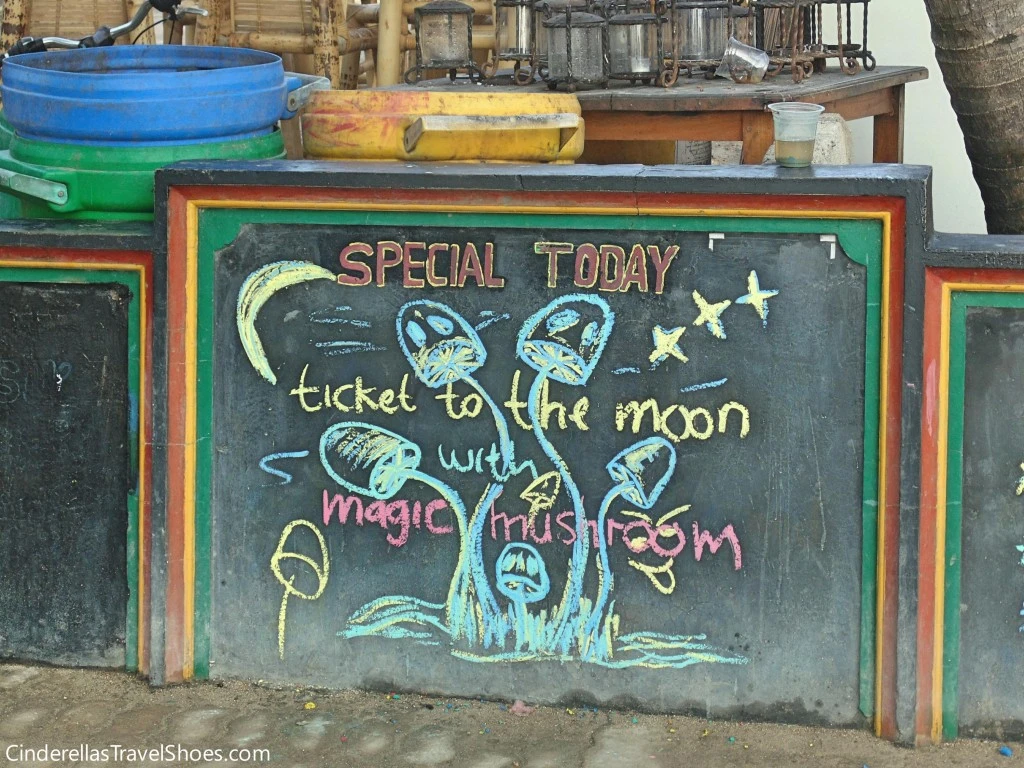 SPECIAL TODAY
ticket to the moon
with
magic mushroom
CinderellasTravelShoes.com